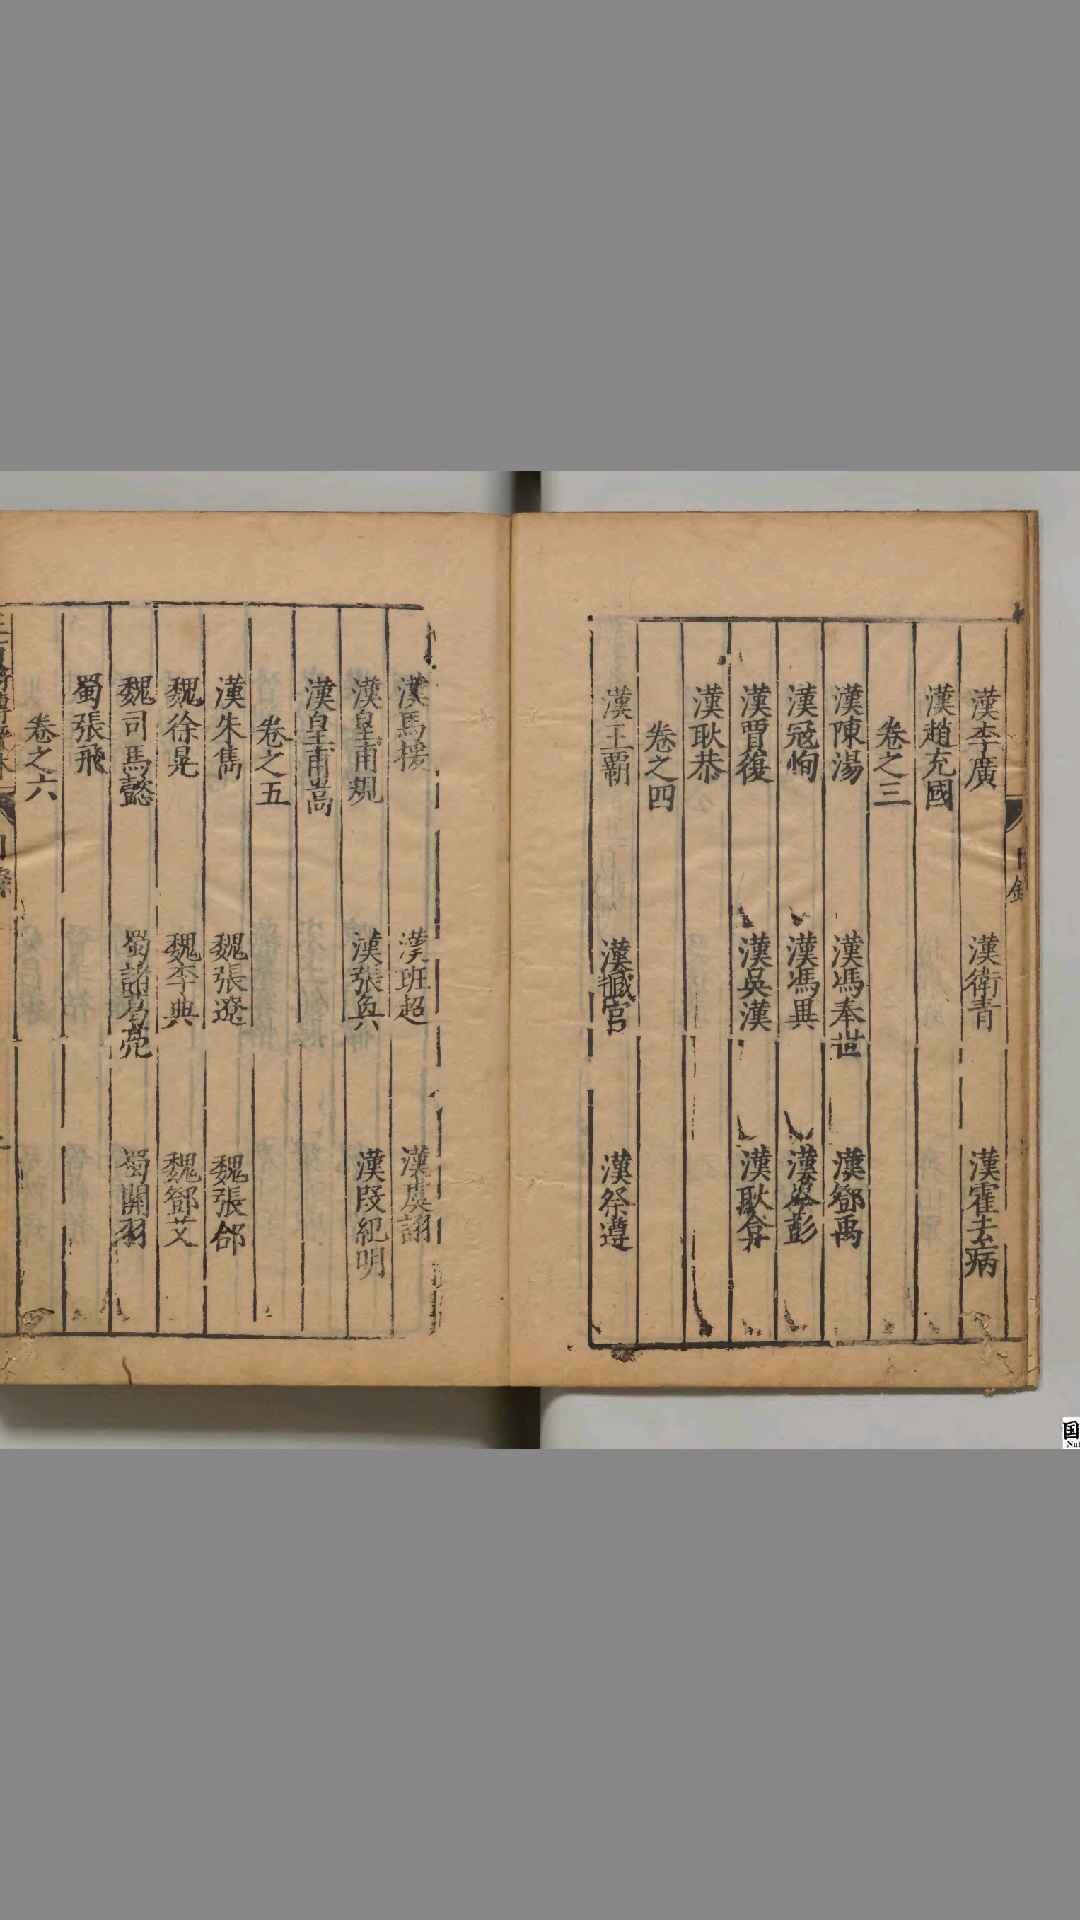 漢李廣　漢衛青　漢霍去病
漢趙充國
卷之三
漢陳湯　漢馮奉世　漢鄧禹
漢冦恂　漢馮異　漢岑彭
漢賈復　漢吳漢　漢耿弇
漢耿恭
卷之四
漢王霸　漢臧宮　漢祭遵
漢馬援　漢班超　漢虞詡
漢皇甫規　漢張奐　漢段紀明
漢皇甫嵩
卷之五
漢朱雋　魏張遼　魏張郃
魏徐晃　魏李典　魏鄧艾
魏司馬懿　蜀諸葛亮　蜀關羽
蜀張飛
卷之六
目錄
国